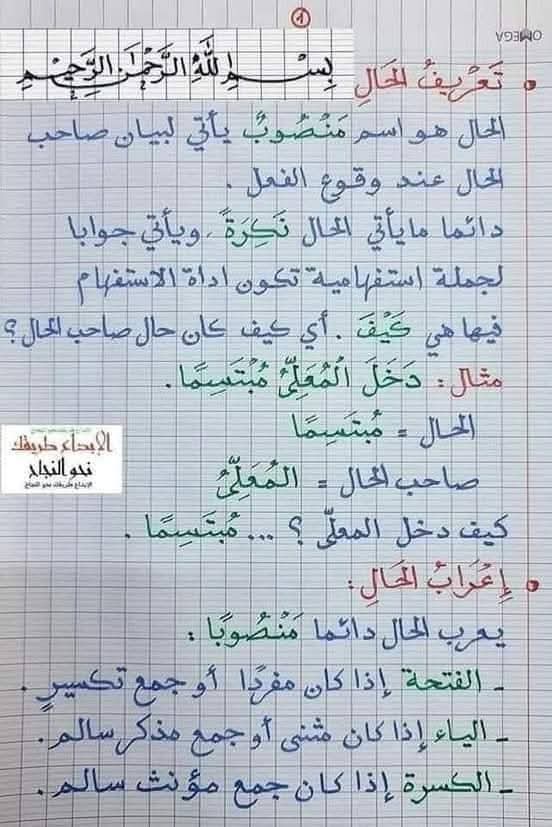 1
OMEGA
بِسْمِ اللَّهِ الرَّحْمَٰنِ الرَّحِيمِ
• تَعْرِيفُ الحَالِ
الحال هو اسم مَنْصُوبٌ يأتي لبيان صاحب
الحال عند وقوع الفعل .
دائما ما يأتي الحال نَكِرَةً ، ويأتي جوابا
لجملة استفهامية تكون اداة الاستفهام
فيها هي كَيْفَ . أي كيف كان حال صاحب الحال ؟
مثال : دَخَلَ الْمُعَلِّمُ مُبْتَسِمًا .
الحال = مُبْتَسِمًا
صاحب الحال = الْمُعَلِّمُ
كيف دخل المعلّم ؟ ... مُبْتَسِمًا .
الإبداع طريقك
نحو النجاح
الإبداع طريقك نحو النجاح
• إِعْرَابُ الحَالِ :
يعرب الحال دائما مَنْصُوبًا :
- الفتحة إذا كان مفردًا أو جمع تكسيرٍ .
- الياء إذا كان مثنى أو جمع مذكر سالم .
- الكسرة إذا كان جمع مؤنث سالم .